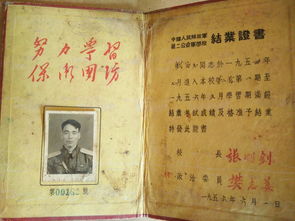 努力學習
保衛國防
第00262號
中國人民解放軍
第二公安軍學校
結業證書
同志於一九五四
年 月進入本校學習第一期至
一九五六年五月學習期滿經
結業考試成績及格准予結業
特發此證書
校長
政治委員 樊志美
一九五六年六月一日